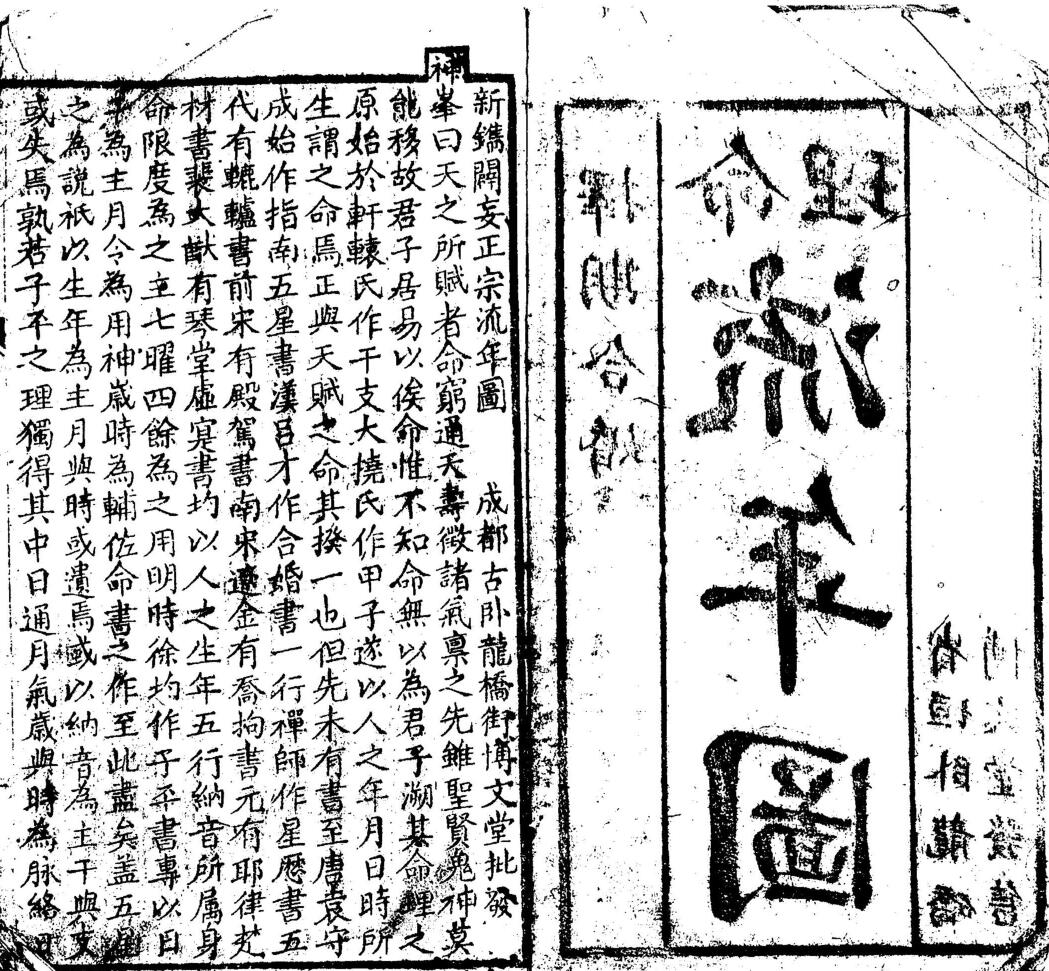 博文堂發售
省垣卧龍橋
命理
流年圖
擇期合婚
新鐫闢妄正宗流年圖　成都古卧龍橋街博文堂批發
神峯曰天之所賦者命窮通夭壽徵諸氣禀之先雖聖賢鬼神莫
能移故君子居易以俟命惟不知命無以為君子溯其命理之
原始於軒轅氏作干支大撓氏作甲子遂以人之年月日時所
生謂之命焉正與天賦之命其揆一也但先未有書至唐袁守
成始作指南五星書漢吕才作合婚書一行禪師作星歷書五
代有轆轤書前宋有殿駕書南宋遼金有喬拘書元有耶律楚
材書裴大猷有琴堂虛寔書均以人之生年五行納音所属身
命限度為之主七曜四餘為之用明時徐均作子平書專以日
干為主月令為用神歲時為輔佐命書之作至此盡矣盖五星
之為説祇以生年為主月與時或遺焉或以納音為主干與支
或失焉孰若子平之理獨得其中日通月氣歲與時為脉絡日